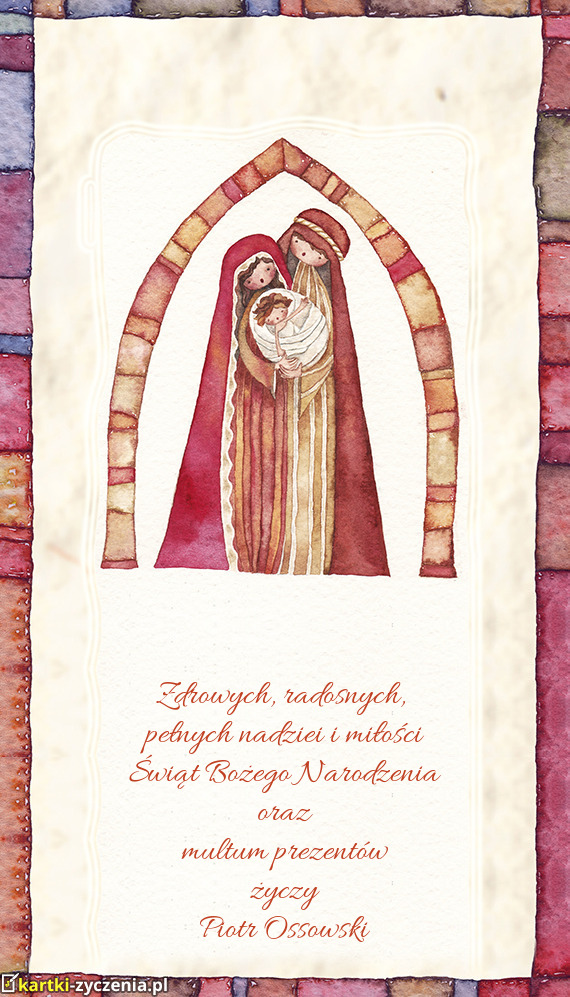 Zdrowych, radosnych,
pełnych nadziei i miłości
Świąt Bożego Narodzenia
oraz
multum prezentów
życzy
Piotr Ossowski
kartki-zyczenia.pl